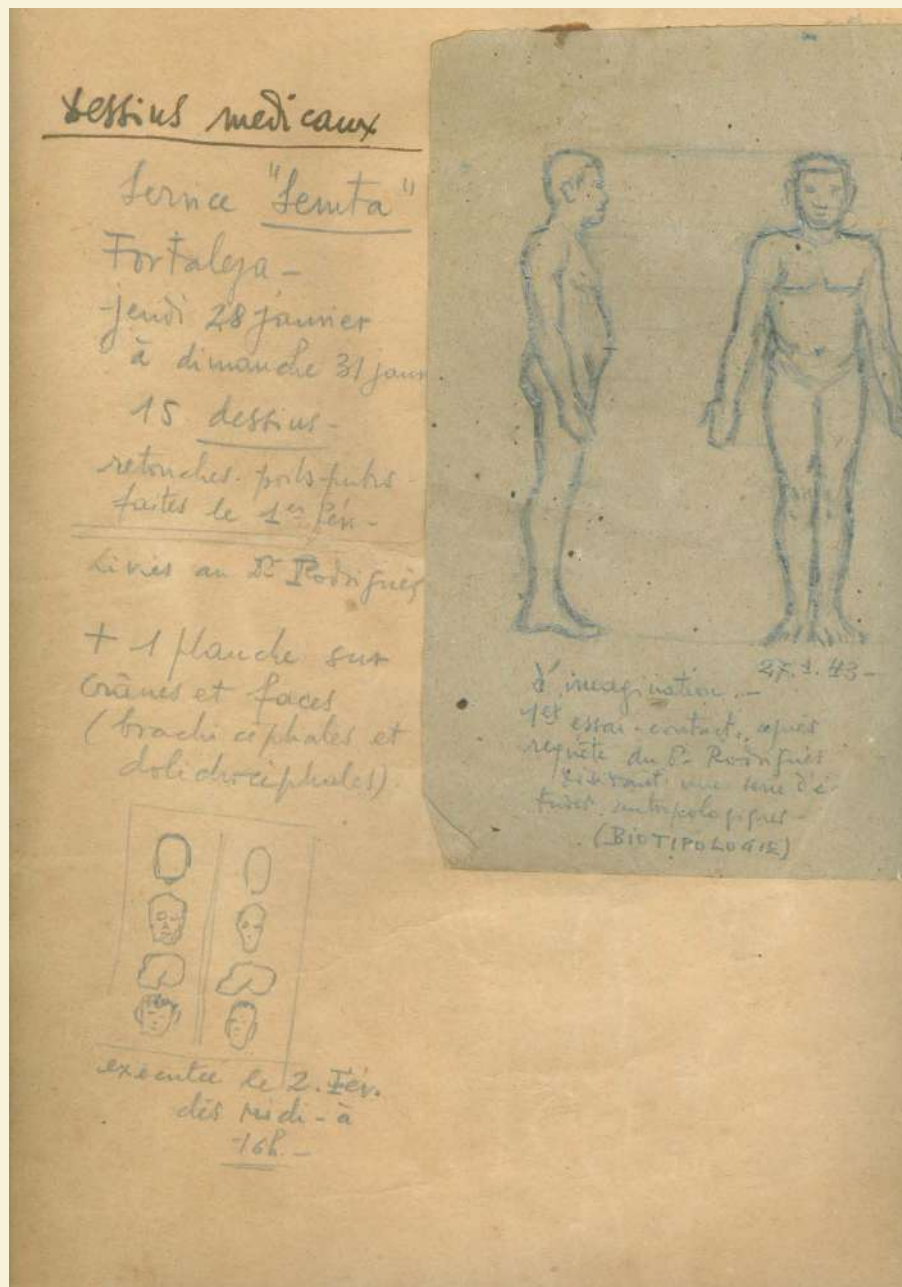 dessins medicaux
Service "Semta"
Fortaleza -
jeudi 28 janvier
à dimanche 31 janv
15 dessins -
retouches
faites le 1er Fév -
Livrés au Dr Rodriguès
+ 1 planche sur
crânes et faces
(brachicéphales et
dolichocéphales).
executée le 2. Fév.
dès midi - à
16h. -
27.1.43 -
d'imagination. -
1er essai-contact, après
requête du Dr Rodriguès
désirant une serie d'é-
tudes antropologiques -
(BIOTIPOLOGIE)